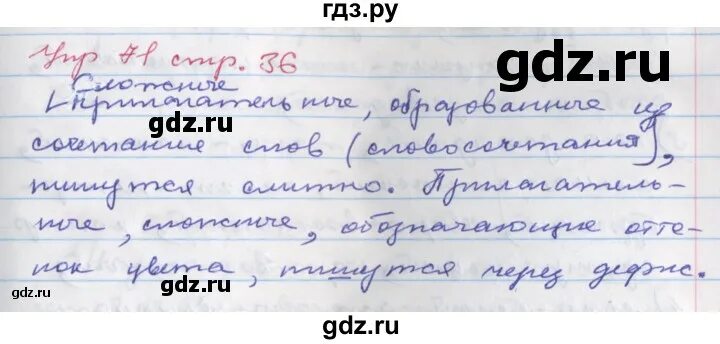 гдз.ру
Упр 71 стр. 36
Сложные
прилагательные, образованные из
сочетание слов (словосочетания),
пишутся слитно. Прилагатель-
ные, сложные, обозначающие отте-
нок цвета, пишутся через дефис.
gdz.ru
gdz.ru
gdz.ru
gdz.ru
gdz.ru
gdz.ru
gdz.ru
gdz.ru